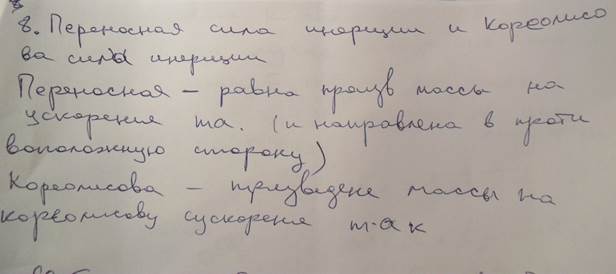 8. Переносная сила инерции и Кореолисо
ва силы инерции
Переносная – равна произв массы на
ускорения ma. (и направлена в проти
воположную сторону)
Кореолисова – призведене массы на
кореолисову сускорения m·a к